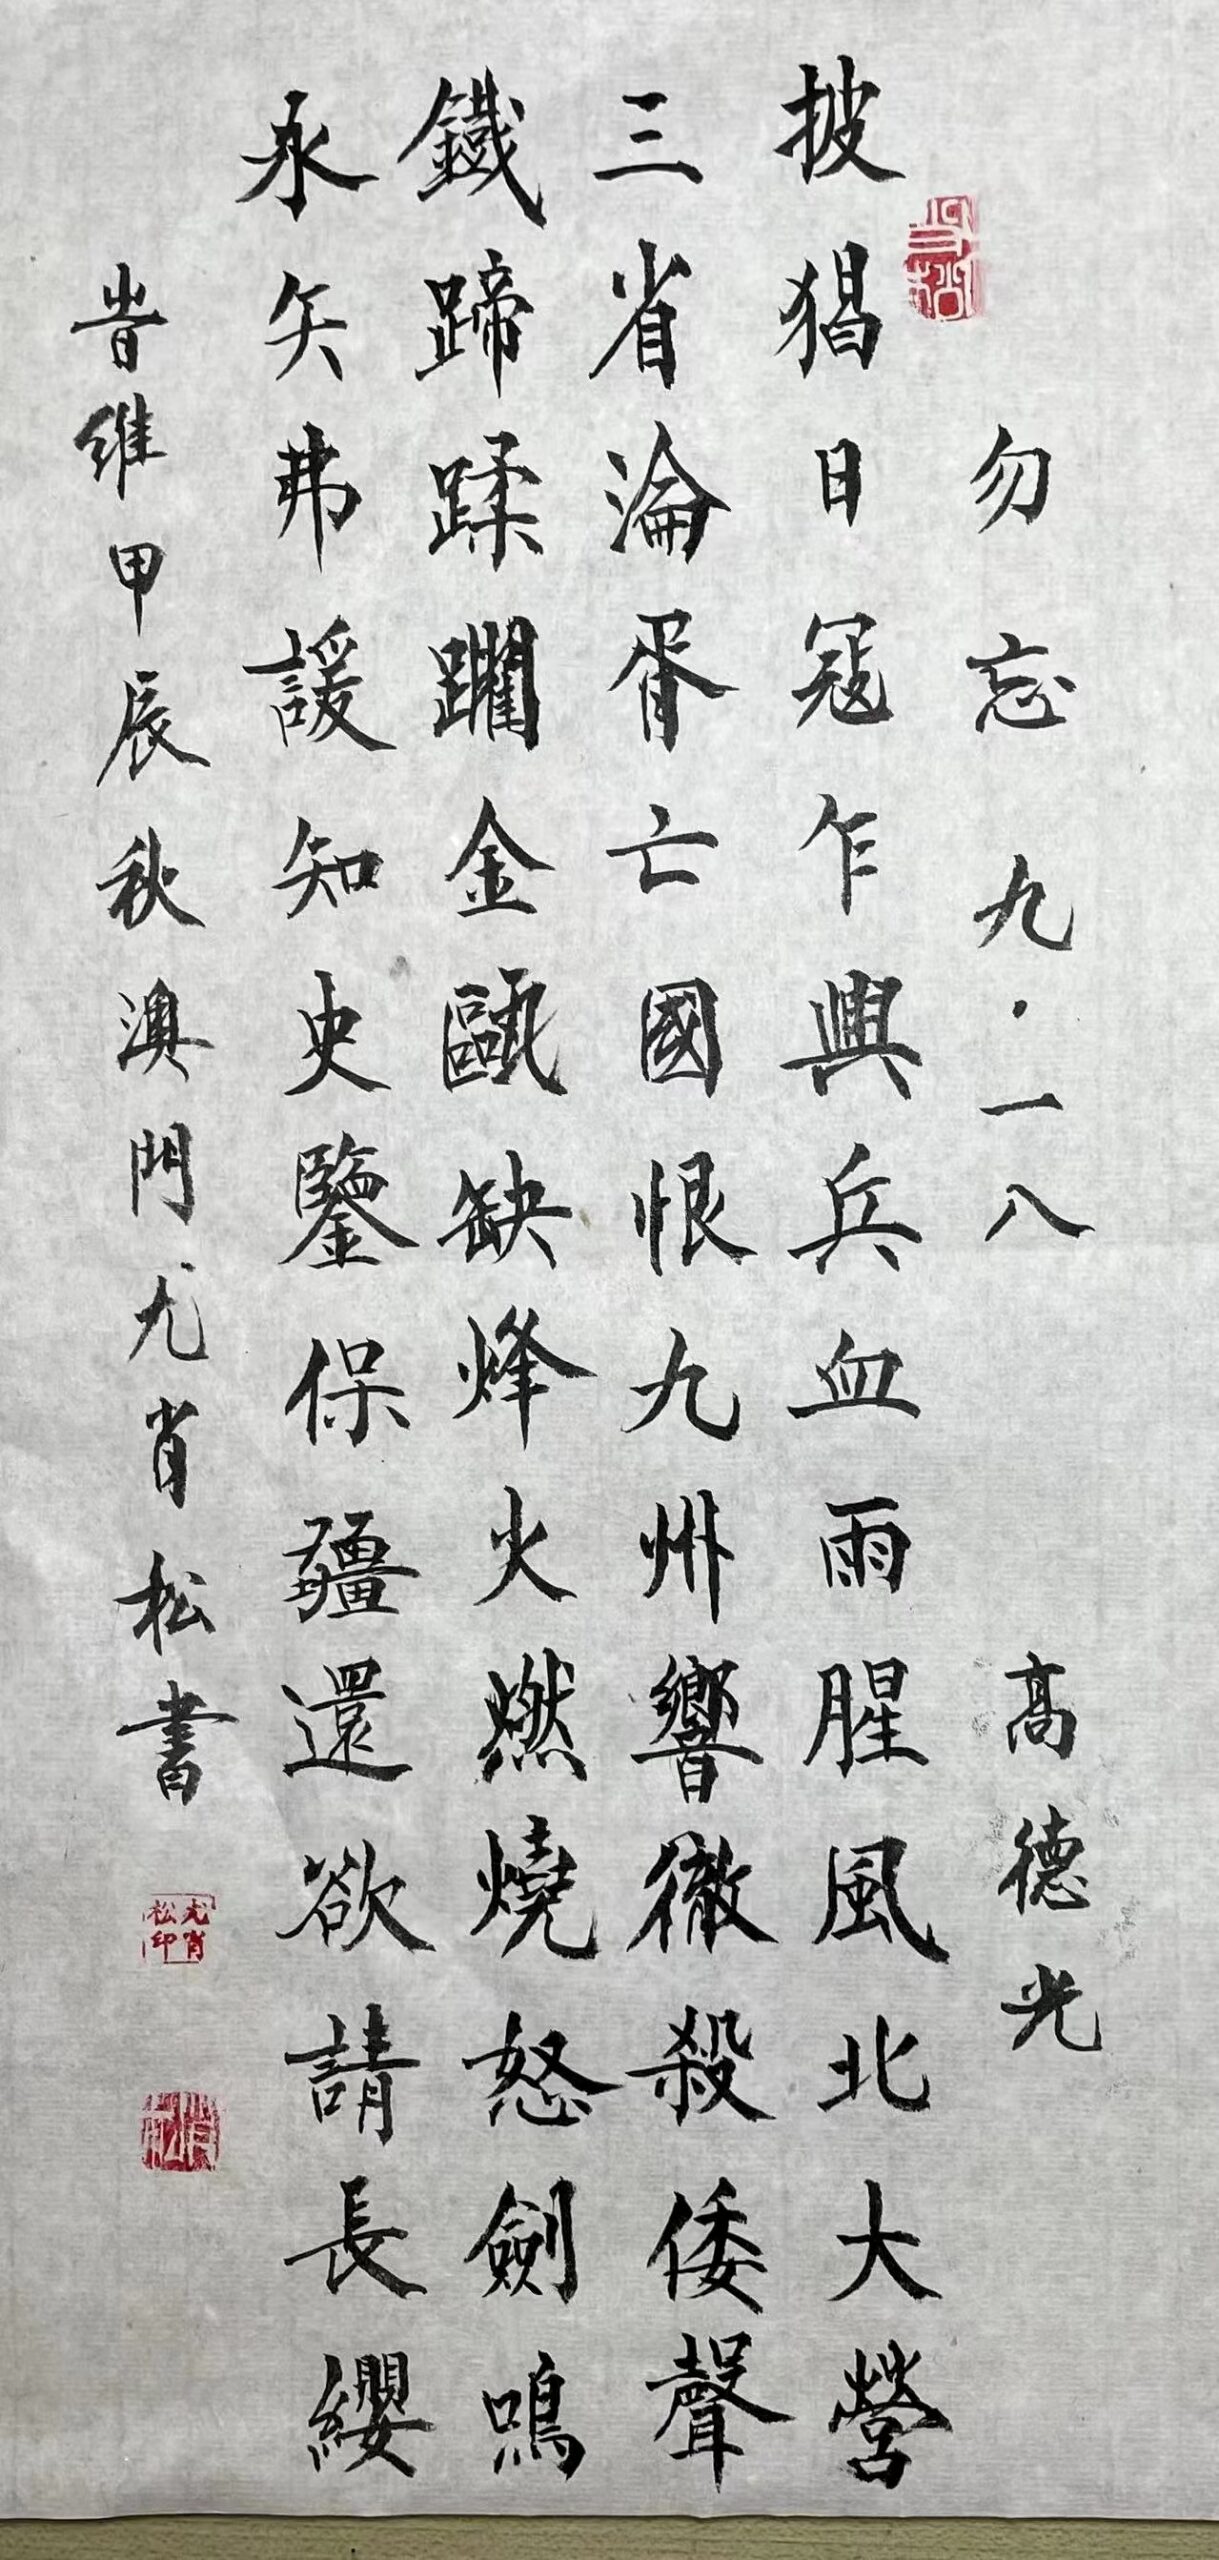 勿忘九·一八 高德光
披猖日寇乍興兵血雨腥風北大營
三省淪胥亡國恨九州響徹殺倭聲
鐵蹄蹂躪金甌缺烽火燃燒怒劍鳴
永矢弗諼知史鑒保疆還欲請長纓
旹維甲辰秋澳門尤肖松書
尤肖松印
肖松